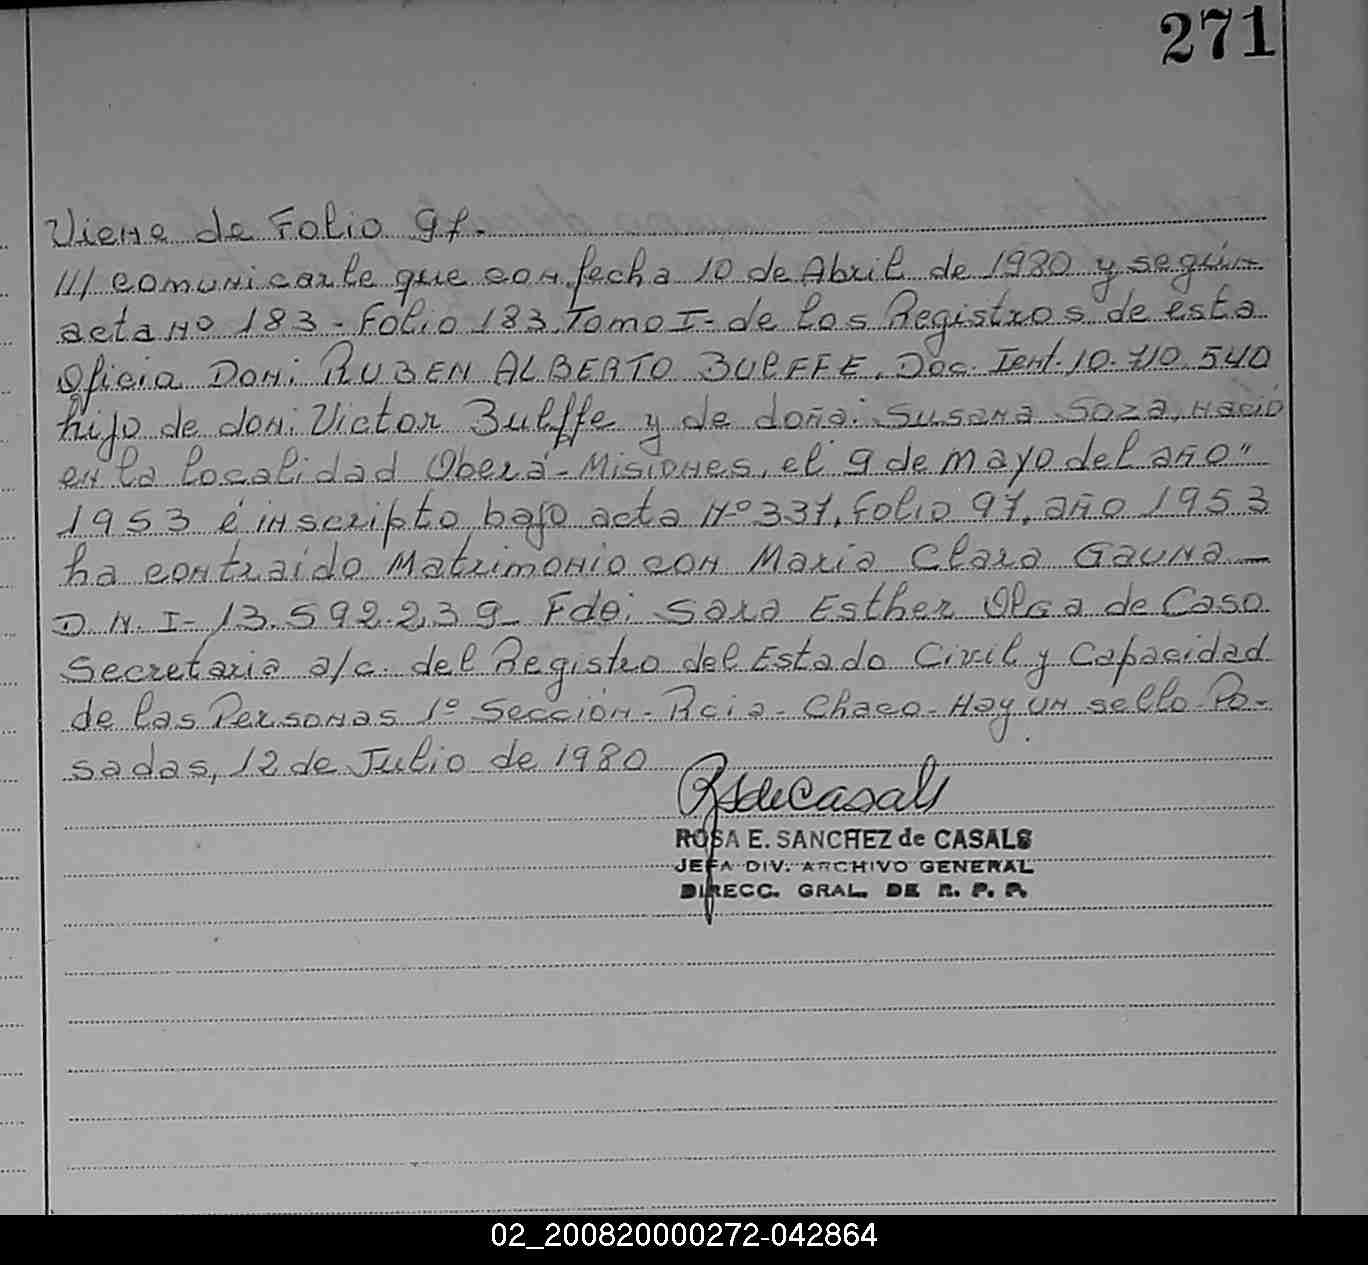 271
Viene de Folio 97.
/// comunicarle que con fecha 10 de Abril de 1980 y según
acta Nº 183 - Folio 183 Tomo I - de los Registros de esta
Oficia Don: RUBEN ALBERTO BULFFE. Doc. Ient. 10.710.540
hijo de don: Victor Bulffe y de doña: Susana Soza, nació
en la localidad Oberá - Misiones, el 9 de mayo del año"
1953 é inscripto bajo acta Nº 337, Folio 97, año 1953
ha contraido Matrimonio con Maria Clara Gauna —
D.N.I - 13.592.239 - Fdo: Sara Esther Olga de Caso
Secretaria a/c. del Registro del Estado Civil y Capacidad
de las Personas 1º Sección - Rcia - Chaco - Hay un sello. Po-
sadas, 12 de Julio de 1980
RSdeCasals
ROSA E. SANCHEZ de CASALS
JEFA DIV. ARCHIVO GENERAL
DIRECC. GRAL. DE R. P. P.
02_200820000272-042864